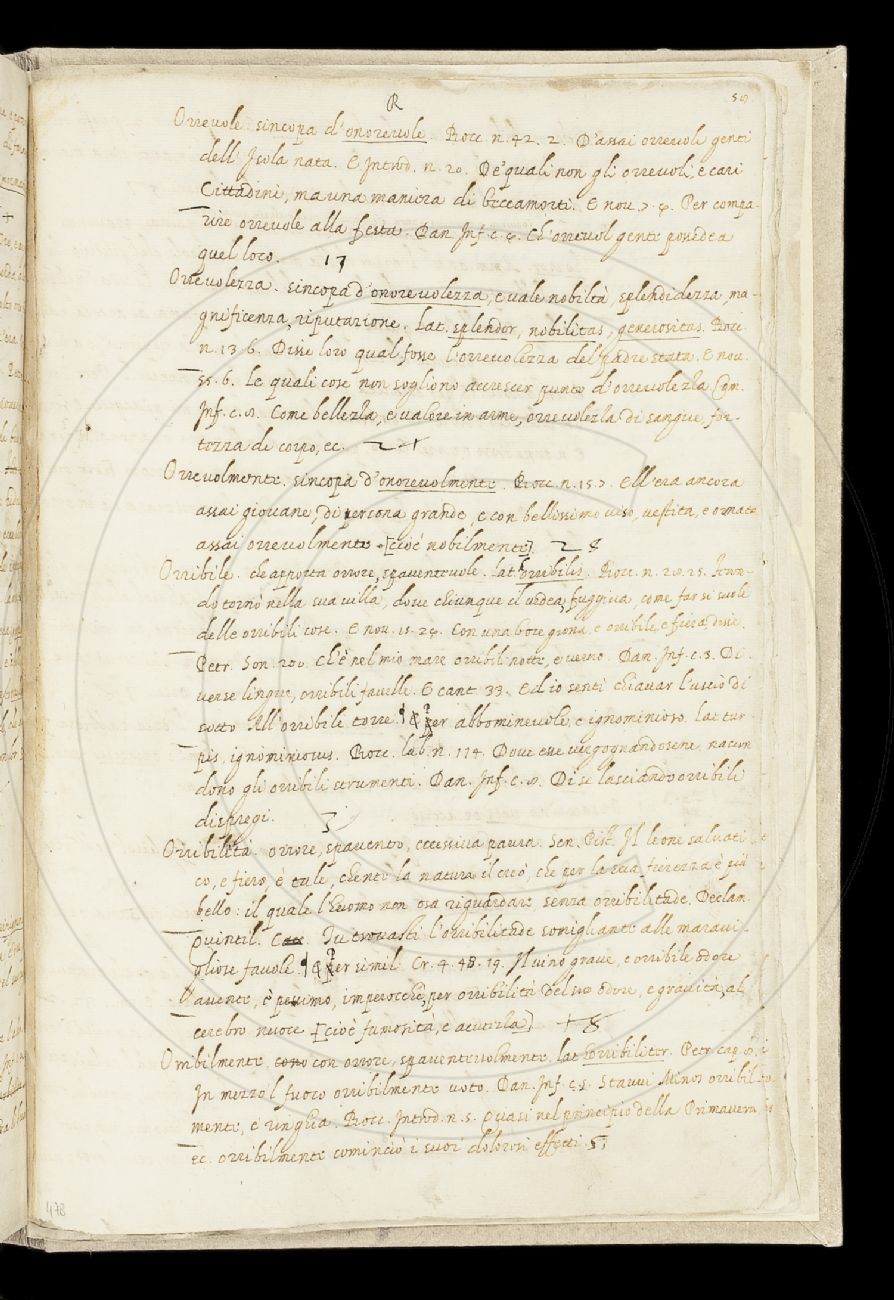 R
Orrevole. sincopa d'onorevole. Bocc. n. 42. 2. D'assai orrevoli genti
dell'Isola nata. E Introd. n. 20. De' quali non gli orrevoli, e cari
Cittadini, ma una maniera di beccamorti. E nov. 7. 4. Per compa-
rire orrevole alla festa. Dan. Inf. c. 4. Ch'orrevol gente possedea
quel loco. 13
Orrevolezza. sincopa d'onorevolezza, e vale nobiltà, splendidezza, ma-
gnificenza, riputazione. Lat. splendor, nobilitas, generositas. Bocc.
n. 13. 6. Disse loro qual fosse l'orrevolezza del padre stata. E nov.
55. 6. Le quali cose non sogliono accrescer punto d'orrevolezza. Com.
Inf. c. Come bellezza, e valore in arme, orrevolezza di sangue, for-
tezza di corpo, ec.
Orrevolmente. sincopa d'onorevolmente. Bocc. n. 15. 7. Ell'era ancora
assai giovane, di persona grande, e con bellissimo viso, vestita, e ornata
assai orrevolmente [cioè nobilmente] 2 8
Orribile. che apporta orrore, spaventevole. lat. horribilis. Bocc. n. 28. 25.
do tornò nella sua villa, dove chiunque il vedea, fuggiva, come far si suole
delle orribili cose. E nov. 15. 24. Con una boce grossa, e orribile, e fiera disse.
Petr. Son. 200. Ch'è nel mio mare orribil notte, e verno. Dan. Inf. c. 3. Di-
verse lingue, orribili favelle. E cant. 33. Ed io senti chiavar l'uscio di
sotto All'orribile torre. ¶ & per abbominevole, e ignominioso. Lat. tur-
pis, ignominiosus. Bocc. lab. n. 174. Dove esse vergognandosene, nascon-
dono gli orribili strumenti. Dan. Inf. c. 8. Di se lasciando orribili
dispregi. 3
Orribilità. orrore, spavento, eccessiva paura. Sen. Pist. Il leone salvati-
co, e fiero, è tale, chente la natura il creò, che per la sua fierezza è più
bello: il quale l'huomo non osa riguardare, senza orribilitade. Declam.
Quintil. C. Tu trovasti l'orribilitade somigliante alle maravi-
gliose favole. ¶ & per simil. Cr. 4. 48. 19. Il vino grave, e orribile odore
avente, è pessimo, imperocchè, per orribilità del suo odore, e gravità, al
cerebro nuoce [cioè fumosità, e acutezza] + 8
Orribilmente, cono con orrore, spaventevolmente, lat. horribiliter. Petr. cap. 8.
In mezzo 'l fuoco orribilmente voto. Dan. Inf. c. 5. Stavvi Minos orribil-
mente, e ringhia. Bocc. Introd. n. 5. Quasi nel principio della Primavera
ec. orribilmente cominciò i suoi dolorosi effetti. 53
478